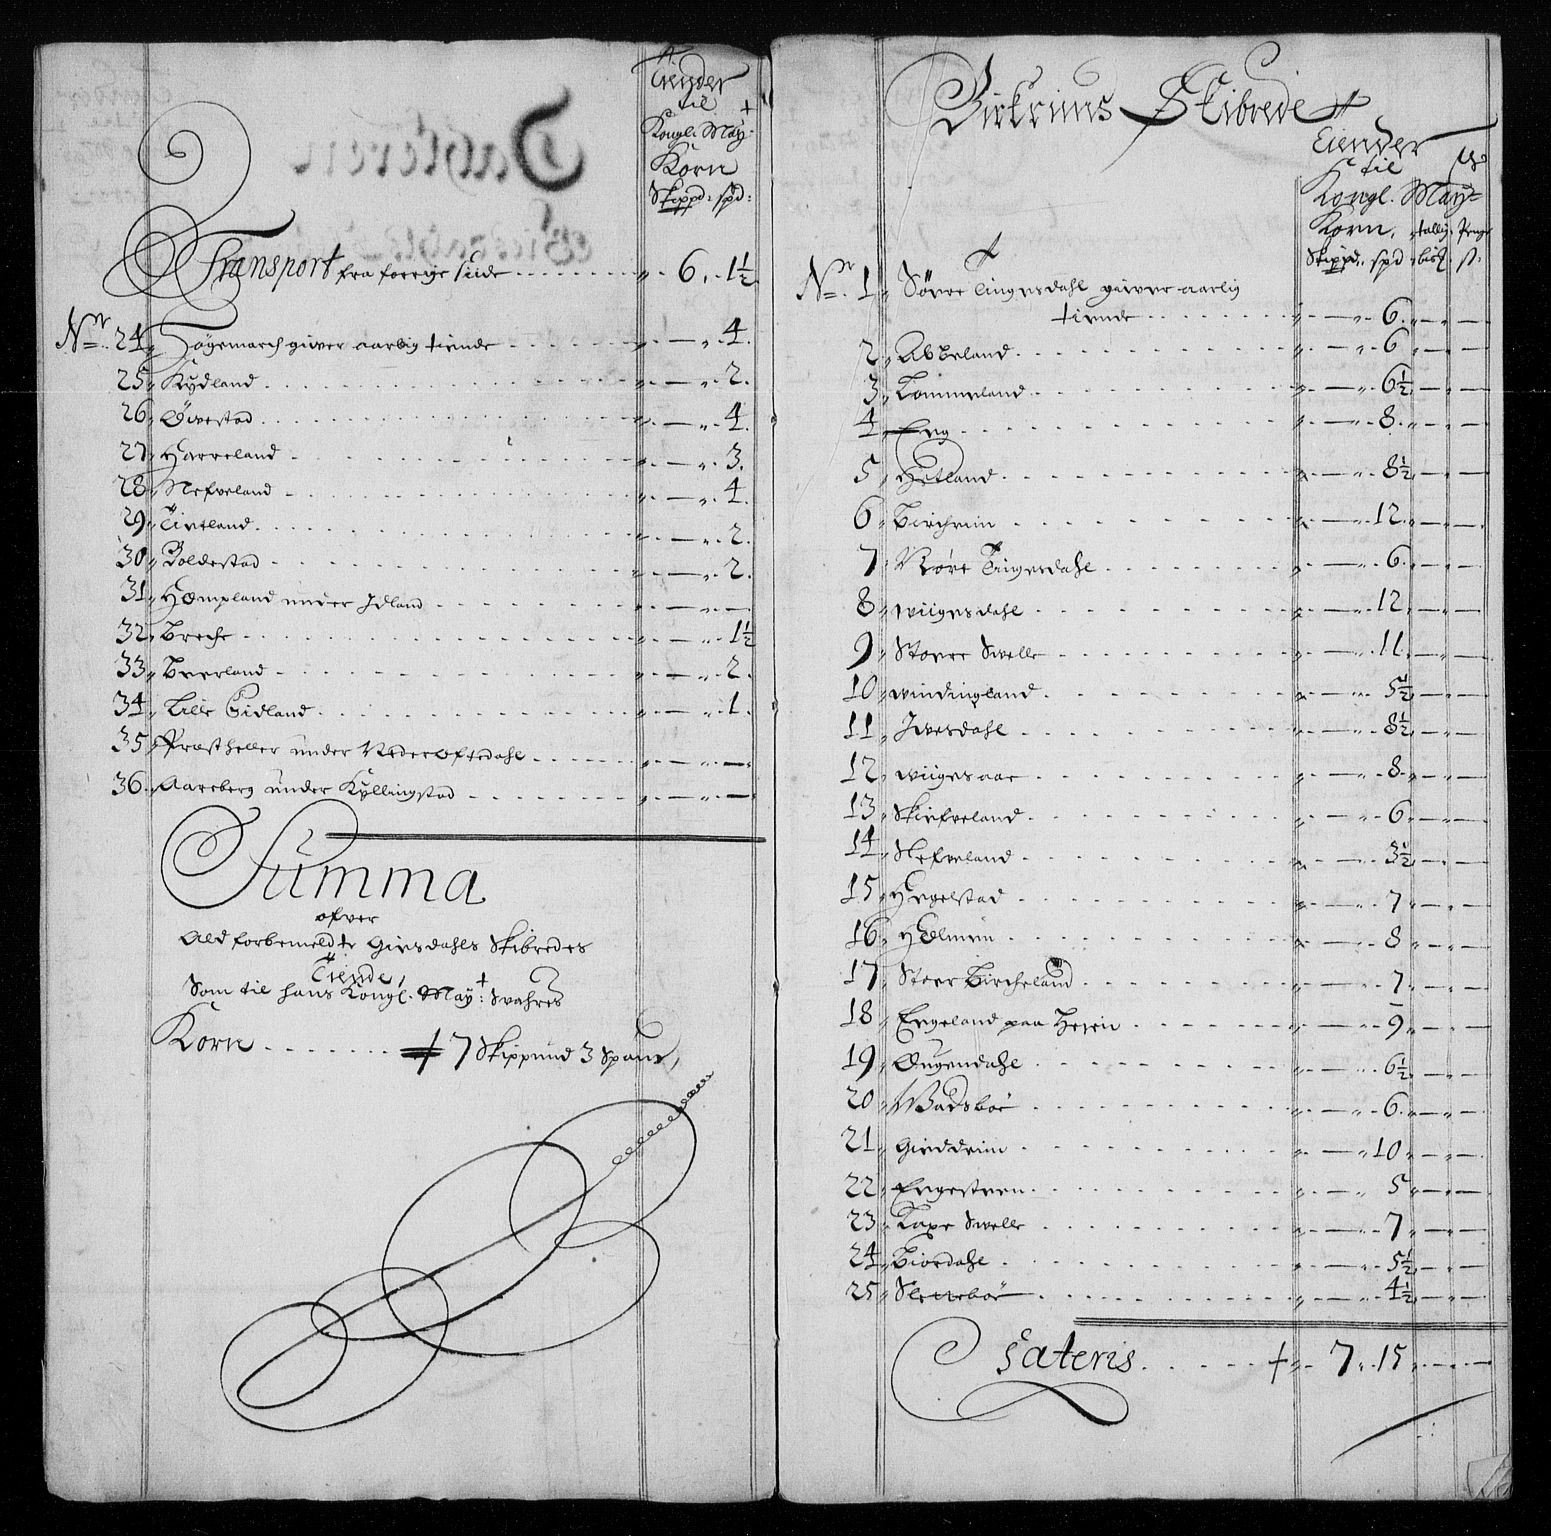 Tiender
til
Kongl. May:
Korn
Skippd: spd:
Transport fra forrige siide 6 1½
Nr. 24 Hogemarch giver aarlig tiende 4
25 Rydland 2
26 Øvestad 4
27 Harveland 3
28 Nefveland 4
29 Tivtland 2
30 Boldestad 2
31 Hompland under Idland
32 Breche 1½
33 Bverland 2
34 Lille Eidland 1
35 Prestheller under Neder Oftedahl
36 Aareberg under Kyllingstad
Summa
ofver
Ald forbemeldte Giesdahls Skibredes
Tiende,
Som til hans Kongl. May: Svahres
Korn 7 Skippund 3 Spand,
Birkrims Skibrede
Tiender
til
Kongl. May:
Korn,
Skippd. spd
Nr. 1 Søere Tingesdahl giver aarlig
tiende 6
2 Abbeland 6
3 Lommeland 6½
4 Erg 8
5 Hetland 8½
6 Birchrim 12
7 Nøre Tingesdahl 6
8 wiigesdahl 12
9 Stoere Svelle 11
10 windingland 5½
11 Ivesdahl 8½
12 wiigesaae 8
13 Skiefveland 6
14 Nefveland 3½
15 Hegelstad 7
16 Holmen 8
17 Stoer Bircheland 7
18 Ergeland paa Heien 9
19 Øugendahl 6½
20 Vadsboe 6
21 Gieddrim 10
22 Ergestren 5
23 Laxe Svelle 7
24 Biordahl 5½
25 Slettebøe 4½
Lateris 7 15